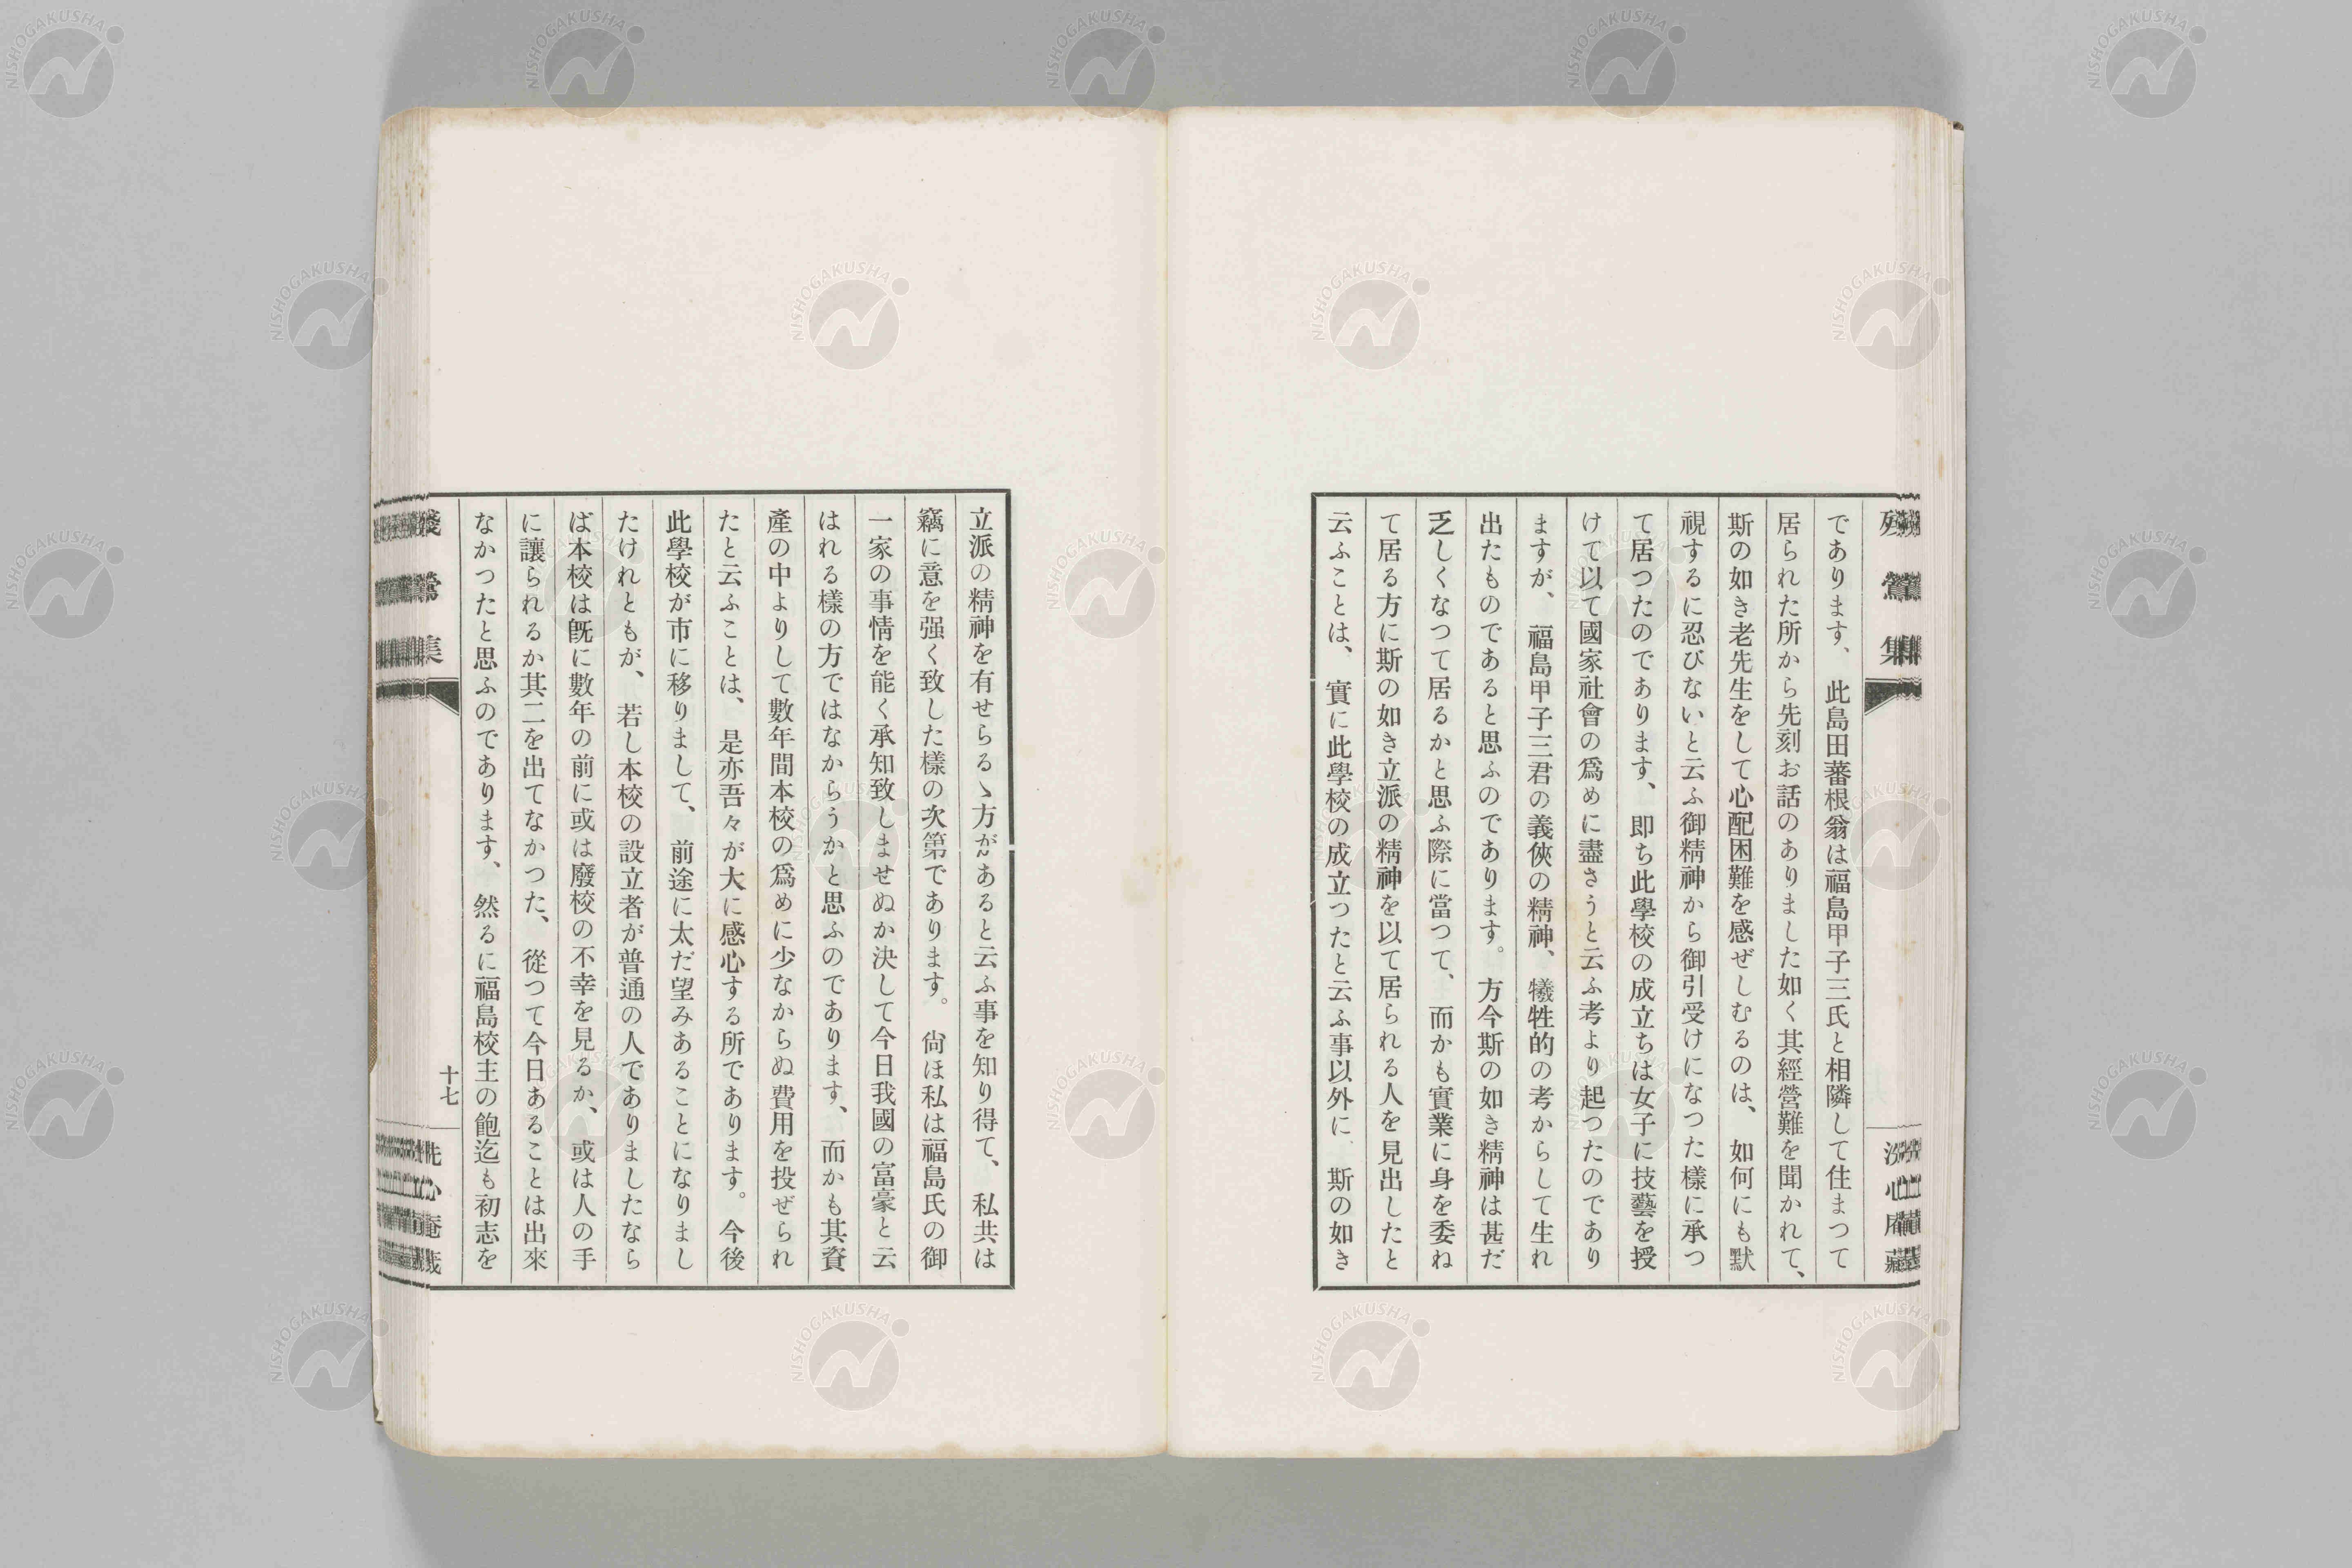 であります、此島田蕃根翁は福島甲子三氏と相隣して住まつて
居られた所から先刻お話のありました如く其經營難を聞かれて、
斯の如き老先生をして心配困難を感ぜしむるのは、如何にも默
視するに忍びないと云ふ御精神から御引受けになつた樣に承つ
て居つたのであります、即ち此學校の成立ちは女子に技藝を授
けて以て國家社會の爲めに盡さうと云ふ考より起つたのであり
ますが、福島甲子三君の義俠の精神、犧牲的の考からして生れ
出たものであると思ふのであります。方今斯の如き精神は甚だ
乏しくなつて居るかと思ふ際に當つて、而かも實業に身を委ね
て居る方に斯の如き立派の精神を以て居られる人を見出したと
云ふことは、實に此學校の成立つたと云ふ事以外に斯の如き
立派の精神を有せらるゝ方があると云ふ事を知り得て、私共は
竊に意を强く致した樣の次第であります。尙ほ私は福島氏の御
一家の事情を能く承知致しませぬか決して今日我國の富豪と云
はれる樣の方ではなからうかと思ふのであります、而かも其資
產の中よりして數年間本校の爲めに少なからぬ費用を投ぜられ
たと云ふことは、是亦吾々が大に感心する所であります。今後
此學校が市に移りまして、前途に太だ望みあることになりまし
たけれともが、若し本校の設立者が普通の人でありましたなら
ば本校は既に數年の前に或は廢校の不幸を見るか、或は人の手
に讓られるか其二を出てなかつた、從つて今日あることは出來
なかつたと思ふのであります、然るに福島校主の飽迄も初志を
十七
NISHOGAKUSHA